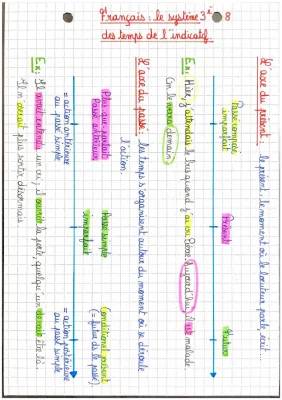 Français : le système 3e 8
des temps de l'indicatif.
L'axe du présent : le présent, le moment où le locuteur parle, écrit...
Passé composé
imparfait
Présent
Futur
Ex : Hier, j'attendais le bus quand j'ai vu Pierre. Aujourd'hui, il est malade.
On le verra demain.
L'axe du passé : les temps s'organisent autour du moment où se déroule
l'action.
Plus que parfait
Passé antérieur
Passé simple
imparfait
Conditionnel présent
(= futur ds le passé)
= action antérieure
au passé simple
= action postérieure
au passé simple
Ex : Il avait entendu un cri ; il ouvrit la porte, quelqu'un devait être là.
Il n'osait plus sortir désormais.